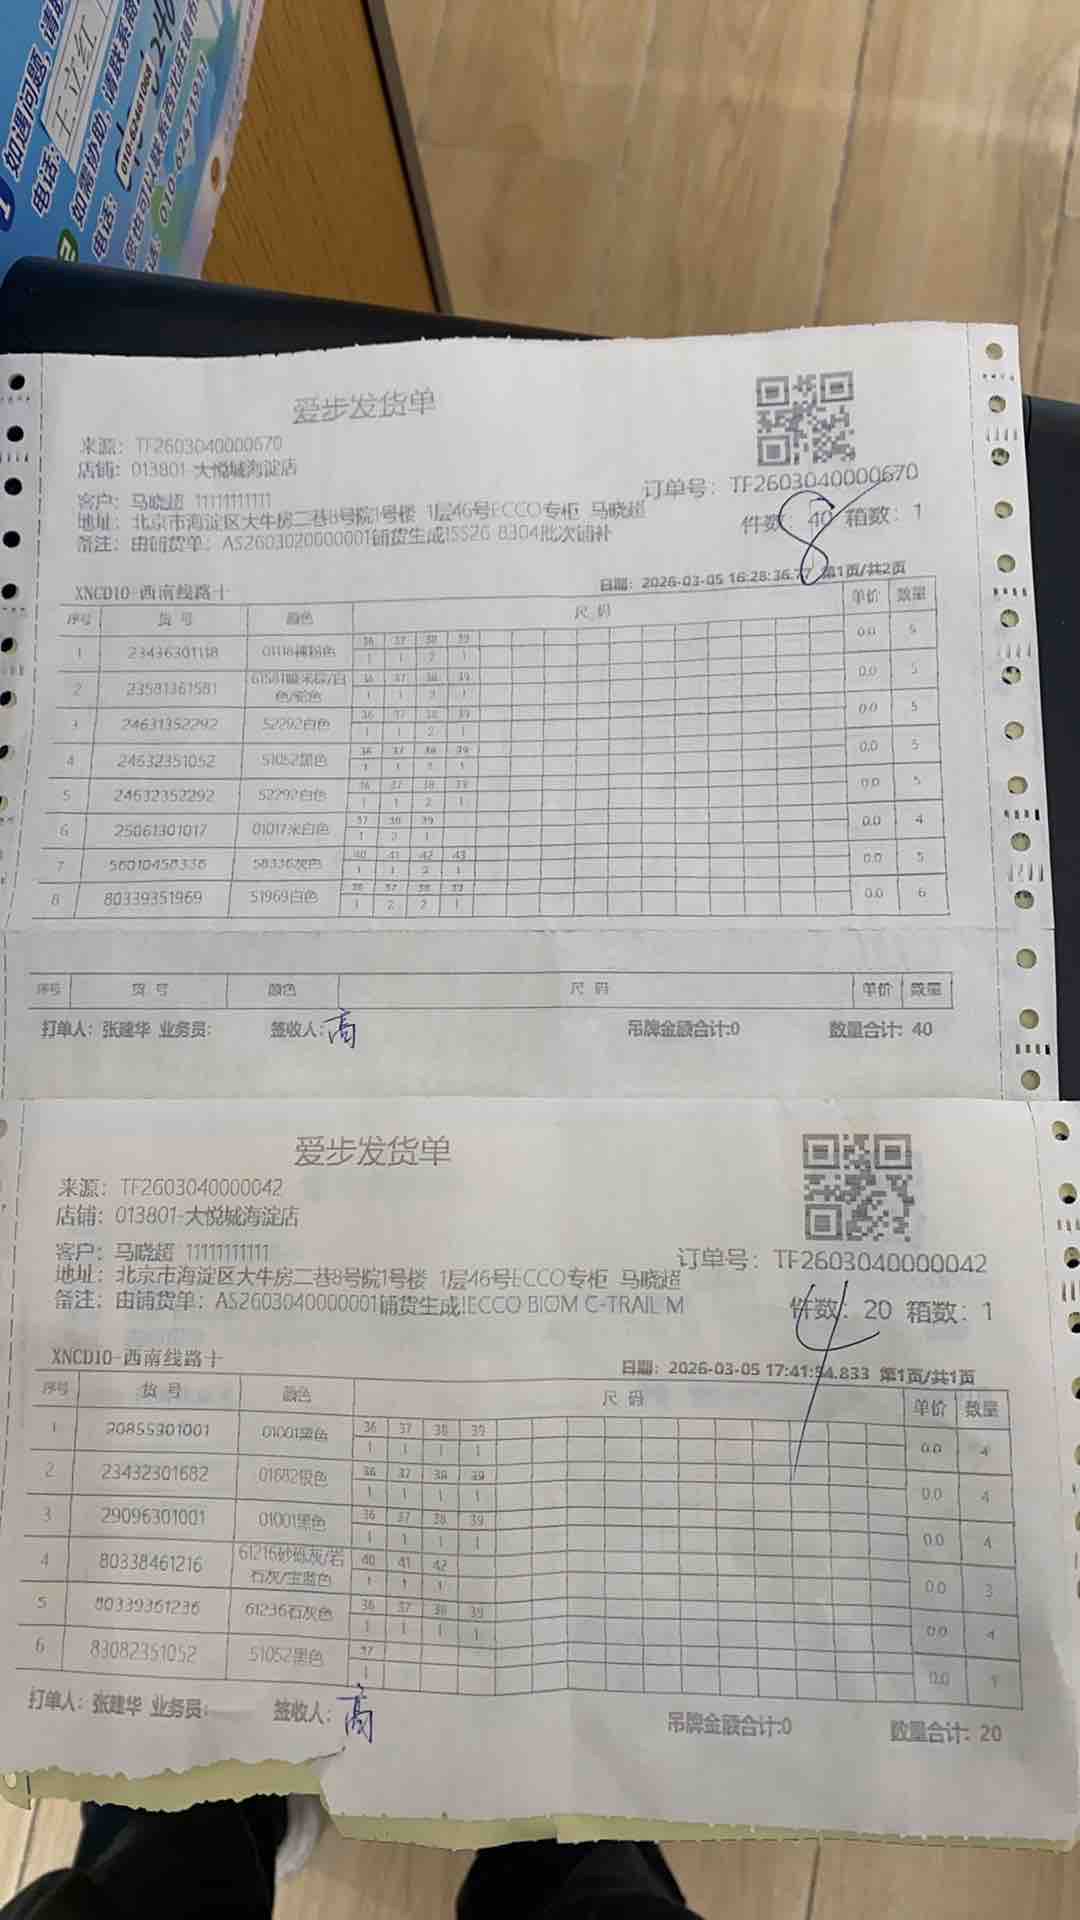 如遇问题,请
电话:
王立红
如需协助,请联系
电话:
010-62461068
您也可以联系西北旺镇
010-62473911
爱步发货单
来源: TF2603040000670
店铺: 013801-大悦城海淀店
订单号: TF2603040000670
客户: 马晓超 11111111111
地址: 北京市海淀区大牛房二巷8号院1号楼 1层46号ECCO专柜 马晓超
件数: 40 箱数: 1
8
备注: 由铺货单: AS2603020000001铺货生成!SS26 8304批次铺补
XNCD10-西南线路十
日期: 2026-03-05 16:28:36.77 第1页/共2页
序号 货号 颜色 尺码 单价 数量
1 23436301118 01118裸粉色 36 37 38 39 0.0 5
1 1 2 1
2 23581361581 61581暖米棕/白色/驼色 36 37 38 39 0.0 5
1 1 2 1
3 24631352292 52292白色 36 37 38 39 0.0 5
1 1 2 1
4 24632351052 51052黑色 36 37 38 39 0.0 5
1 1 2 1
5 24632352292 52292白色 36 37 38 39 0.0 5
1 1 2 1
6 25061301017 01017米白色 37 38 39 0.0 4
1 2 1
7 56010458336 58336灰色 40 41 42 43 0.0 5
1 1 2 1
8 80339351969 51969白色 36 37 38 39 0.0 6
1 2 2 1
序号 货号 颜色 尺码 单价 数量
打单人: 张建华 业务员: 签收人: 高 吊牌金额合计:0 数量合计: 40
爱步发货单
来源: TF2603040000042
店铺: 013801-大悦城海淀店
客户: 马晓超 11111111111
订单号: TF2603040000042
地址: 北京市海淀区大牛房二巷8号院1号楼 1层46号ECCO专柜 马晓超
备注: 由铺货单: AS2603040000001铺货生成!ECCO BIOM C-TRAIL M
件数: 20 箱数: 1
4
XNCD10-西南线路十
日期: 2026-03-05 17:41:54.833 第1页/共1页
序号 货号 颜色 尺码 单价 数量
1 20855301001 01001黑色 36 37 38 39 0.0 4
1 1 1 1
2 23432301682 01682银色 36 37 38 39 0.0 4
1 1 1 1
3 29096301001 01001黑色 36 37 38 39 0.0 4
1 1 1 1
4 80338461216 61216砂砾灰/岩石灰/宝蓝色 40 41 42 0.0 3
1 1 1
5 80339361236 61236石灰色 36 37 38 39 0.0 4
1 1 1 1
6 83082351052 51052黑色 37 0.0 1
1
打单人: 张建华 业务员: 签收人: 高 吊牌金额合计:0 数量合计: 20